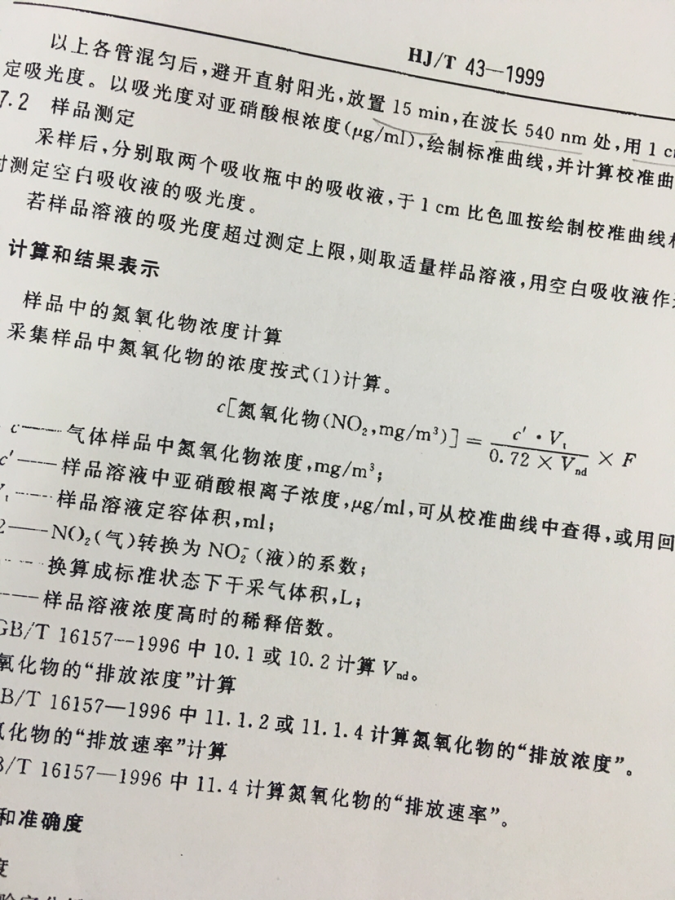 HJ/T 43—1999
以上各管混匀后,避开直射阳光,放置 15 min,在波长 540 nm 处,用 1 c
定吸光度。以吸光度对亚硝酸根浓度(μg/ml),绘制标准曲线,并计算校准曲
7.2 样品测定
采样后,分别取两个吸收瓶中的吸收液,于 1 cm 比色皿按绘制校准曲线
测定空白吸收液的吸光度。
若样品溶液的吸光度超过测定上限,则取适量样品溶液,用空白吸收液作
计算和结果表示
样品中的氮氧化物浓度计算
采集样品中氮氧化物的浓度按式(1)计算。
c[氮氧化物(NO₂,mg/m³)] = c′·Vₜ / 0.72 × Vnd × F
c——气体样品中氮氧化物浓度,mg/m³;
c′——样品溶液中亚硝酸根离子浓度,μg/ml,可从校准曲线中查得,或用回
ₜ——样品溶液定容体积,ml;
2——NO₂(气)转换为 NO₂⁻(液)的系数;
——换算成标准状态下干采气体积,L;
——样品溶液浓度高时的稀释倍数。
GB/T 16157—1996 中 10.1 或 10.2 计算 Vnd。
氧化物的“排放浓度”计算
B/T 16157—1996 中 11.1.2 或 11.1.4 计算氮氧化物的“排放浓度”。
化物的“排放速率”计算
/T 16157—1996 中 11.4 计算氮氧化物的“排放速率”。
和准确度
度